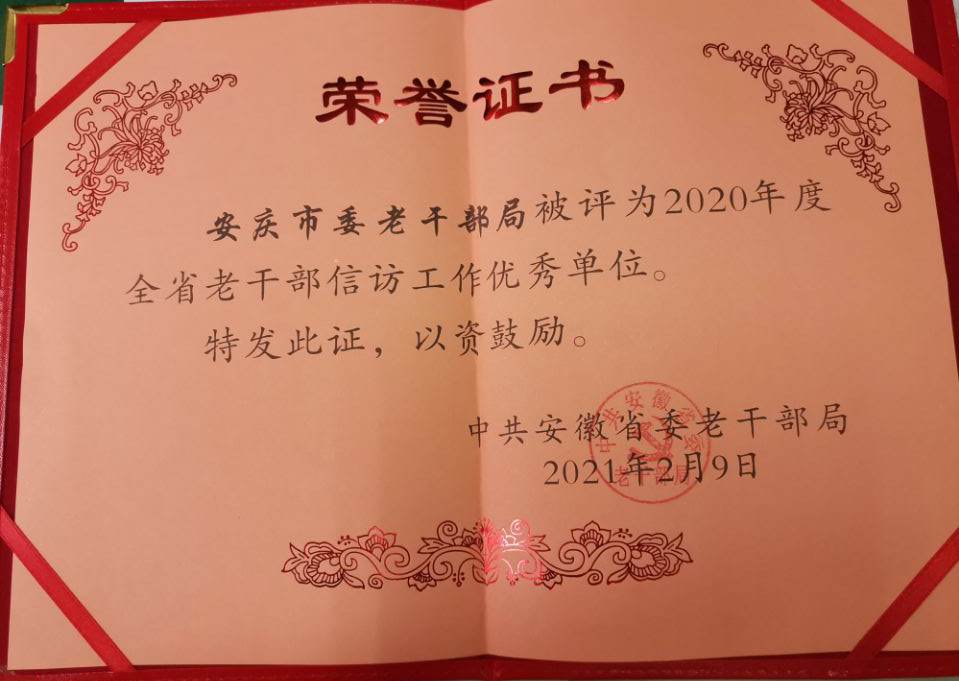 荣誉证书
安庆市委老干部局被评为2020年度
全省老干部信访工作优秀单位。
特发此证，以资鼓励。
中共安徽省委老干部局
2021年2月9日
中共安徽省委
老干部局